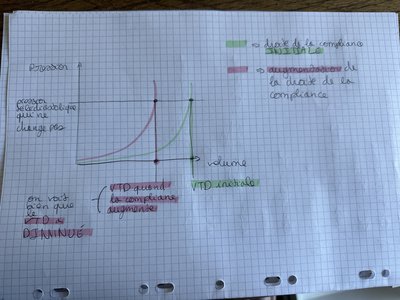 ⇒ droite de la compliance
INITIALE
⇒ augmentation de
la droite de la
compliance
Pression
pression
télédiastolique
qui ne
change pas
volume
VTD quand
la compliance
augmente
VTD initiale
on voit
bien que
le
VTD a
DIMINUÉ